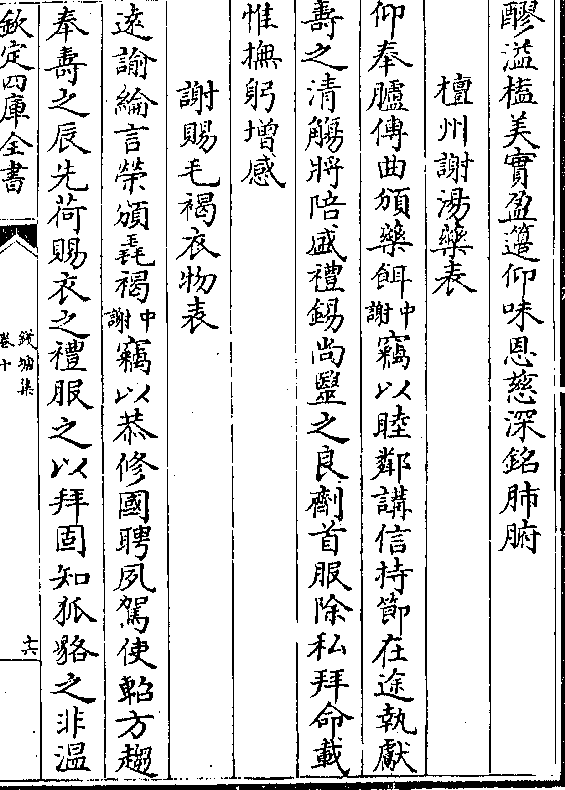 醪溢榼美實盈籩仰味恩慈深銘肺腑
檀州謝湯藥表
仰奉臚傳曲頒藥餌中謝竊以睦鄰講信持節在途執獻
壽之清觴將陪盛禮錫尚毉之良劑首服除私拜命載
惟撫躬增感
謝賜毛褐衣物表
逺諭綸言榮頒毳褐中謝竊以恭修國聘夙駕使軺方趨
奉壽之辰先荷賜衣之禮服之以拜固知狐貉之非溫
欽定四庫全書
錢塘集
卷十
六